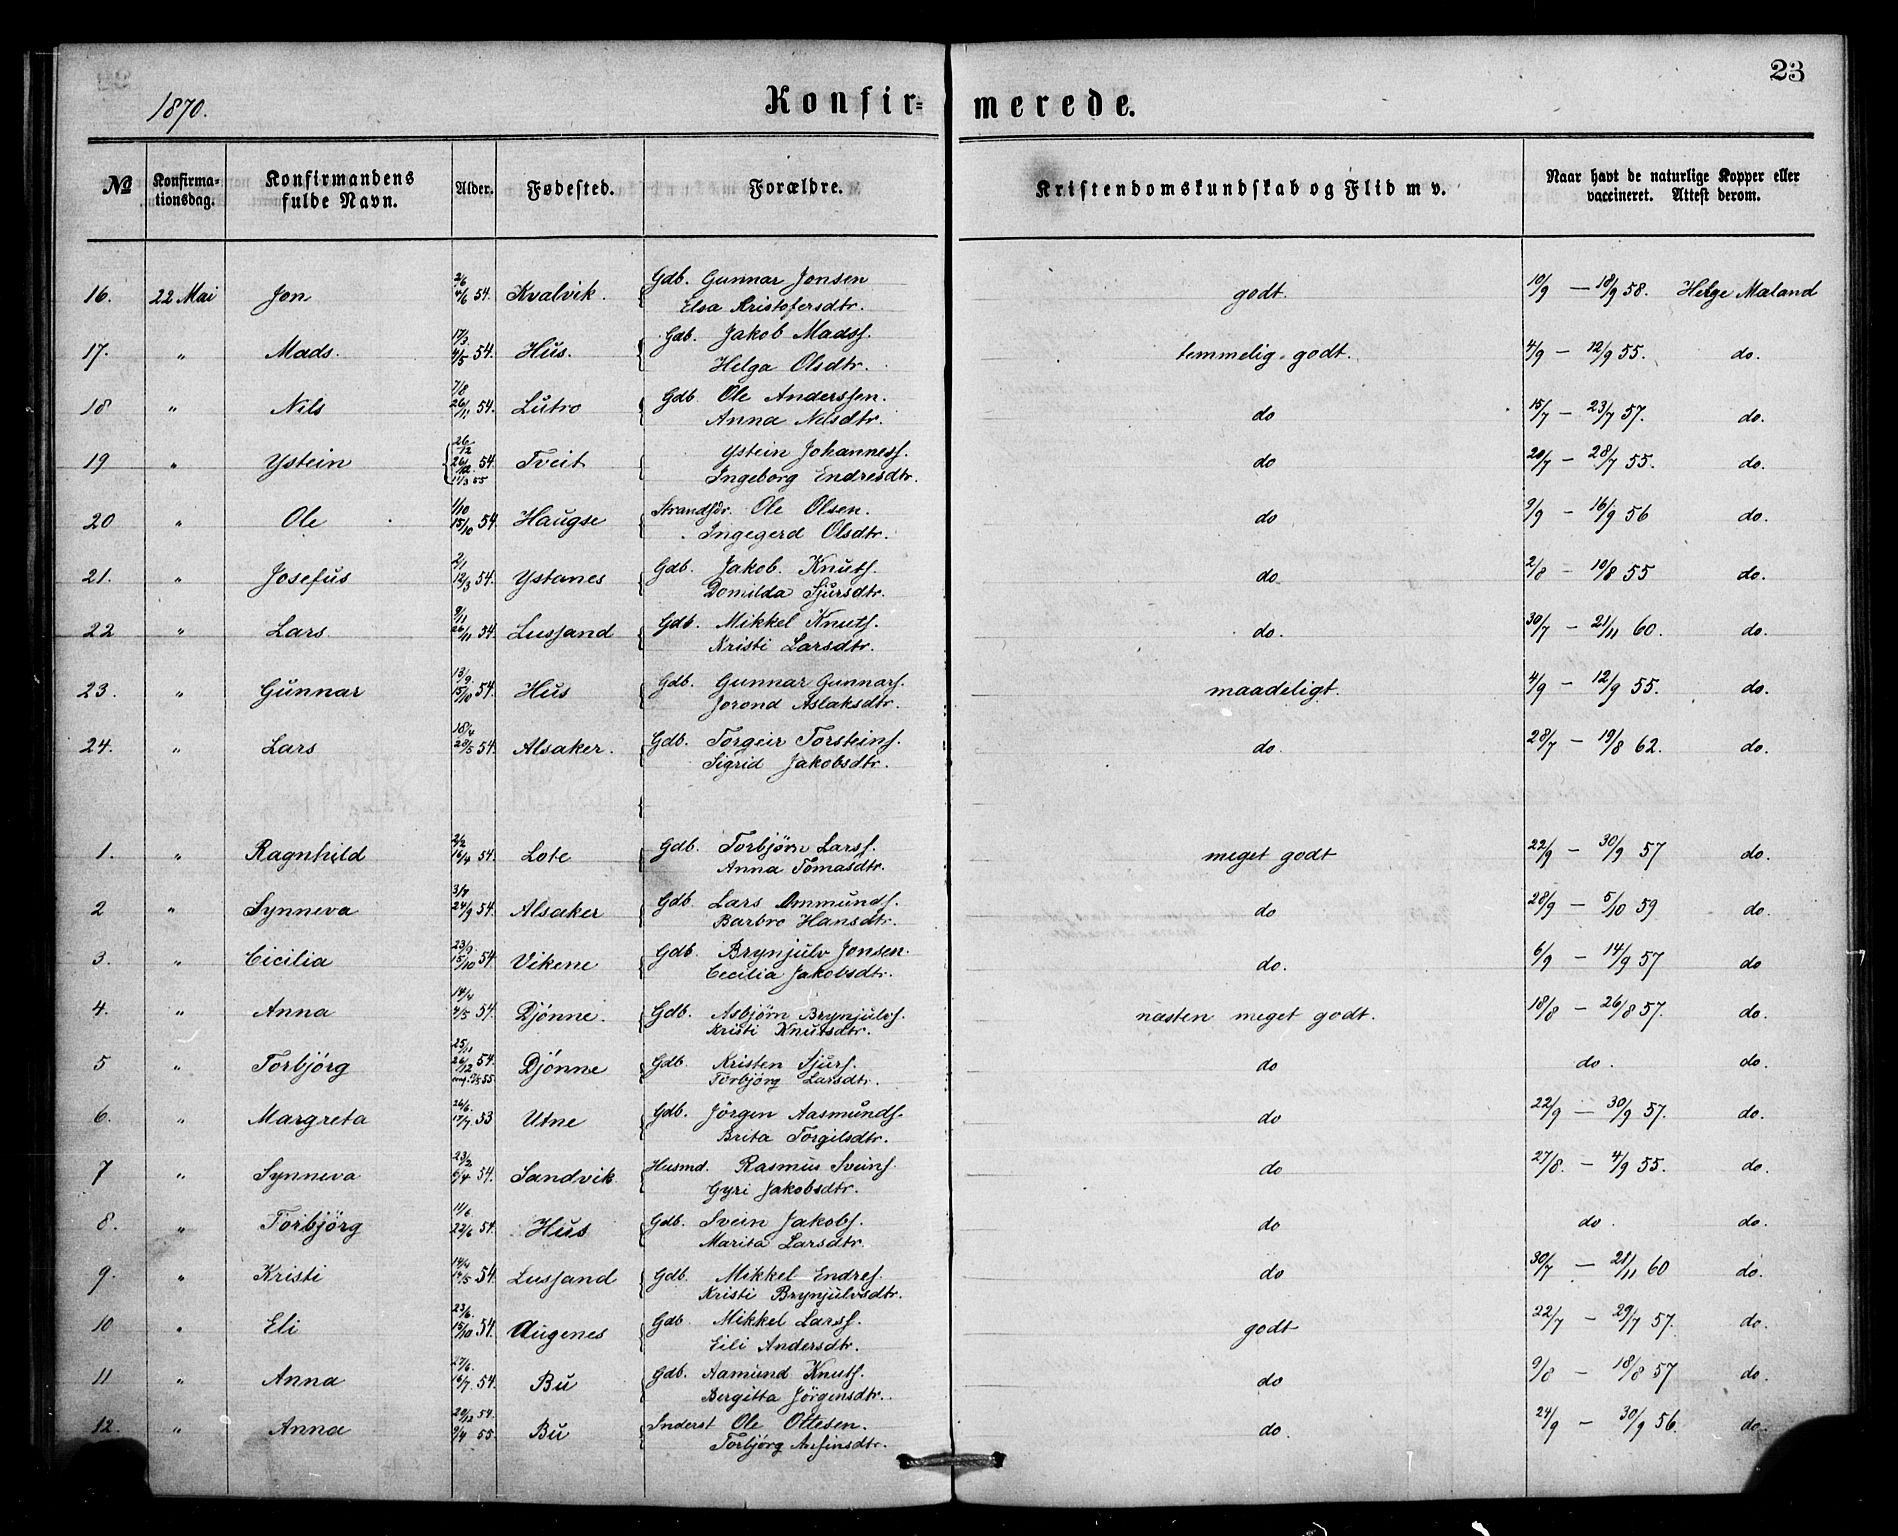 23
1870.
Konfir= merede.
№ Konfirma-tionsdag. Konfirmandens fulde Navn. Alder. Fødested. Forældre. Kristendomskundskab og Flid m v. Naar havt de naturlige Kopper eller vaccineret. Attest derom.
16. 22 Mai Jon 2/6 4/6 54. Kvalvik. Gdb. Gunnar Jonsen godt. 10/9 — 18/9 58. Helge Mæland
Elsa Kristofersdtr.
17. " Mads. 17/3 4/5 54. Hus. Gdb. Jakob Madss. temmelig godt. 4/9 — 12/9 55. do.
Helga Olsdtr.
18 " Nils 7/8 26/11 54. Lutro Gdb. Ole Anderssen. do 15/7 — 23/7 57. do.
Anna Nilsdtr.
19 " Ystein 26/12 26/12 54. 11/3 55 Tveit Ystein Johanness. do 20/7 — 28/7 55. do.
Ingeborg Endresdtr.
20 " Ole 1/10 15/10 54. Haugse Strandsdr. Ole Olsen. do 9/9 — 16/9 56 do.
Ingegerd Olsdtr.
21. " Josefus 2/1 12/3 54. Ystanes Gdb. Jakob. Knuts. do 2/8 — 10/8 55 do.
Domilda Sjursdtr.
22 " Lars 9/11 26/11 54. Lussand Gdb. Mikkel Knuts. do. 30/7 — 21/11 60. do.
Kristi Larsdtr.
23. " Gunnar 13/9. 15/10 54. Hus Gdb. Gunnar Gunnars. maadeligt. 4/9 — 12/9 55. do.
Jorond Aslaksdtr.
24. " Lars 18/4 28/5 54. Alsaker. Gdb. Torgeir Torsteins. do. 28/7 — 19/8 62. do.
Sigrid Jakobsdtr.
1. " Ragnhild 2/2 16/4 54. Lote Gdb. Torbjörn Larss. meget godt 22/9 — 30/9 57 do.
Anna Tomasdtr.
2 " Synneva 3/9 24/9 54. Alsaker Gdb. Lars Ommunds. do 28/9 — 5/10 59 do.
Barbro Hansdtr.
3. " Cicilia 23/9. 15/10 54. Vikene Gdb. Brynjulv Jonsen. do. 6/9 — 14/9 57 do
Cecilia Jakobsdtr.
4. " Anna 14/4 4/5 54. Djönne. Gdb. Asbjörn Brynjulvs. næsten meget godt. 18/8 — 26/8 57. do.
Kristi Knutsdtr.
5 " Torbjörg 25/11 26/12 54. Djönne Gdb. Kristen Sjurs. do do. do.
Torbjörg Larsdtr.
6. " Margreta 26/6. 17/7 53 Utne Gdb. Jörgen Aasmunds. do 22/9 — 30/9 57. do.
Brita Torgilsdtr.
7 " Synneva 23/2 6/4 54. Sandvik Husmd. Rasmus Sveins. do 27/8. — 4/9 55. do.
Gyri Jakobsdtr.
8. " Torbjörg 11/6. 22/6 54. Hus Gdb. Svein Jakobs. do do. do.
Marita Larsdtr.
9. " Kristi 14/4 14/5 54. Lussand Gdb. Mikkel Endres. do 30/7 — 21/11 60 do.
Kristi Brynjulvsdtr.
10 " Eli 23/6. 15/10 54. Augenes Gdb. Mikkel Larss. godt 22/7 — 29/7 57. do.
Eili Andersdtr.
11 " Anna 27/6. 16/7. 54. Bu Gdb. Aamund Knuts. do 9/8 — 18/8 57 do.
Bergitta Jörgensdtr.
12. " Anna 20/12 54. 9/4 55 Bu Inderst Ole Ottesen. do. 24/9 — 30/9 56. do.
Torbjörg Anfinsdtr.